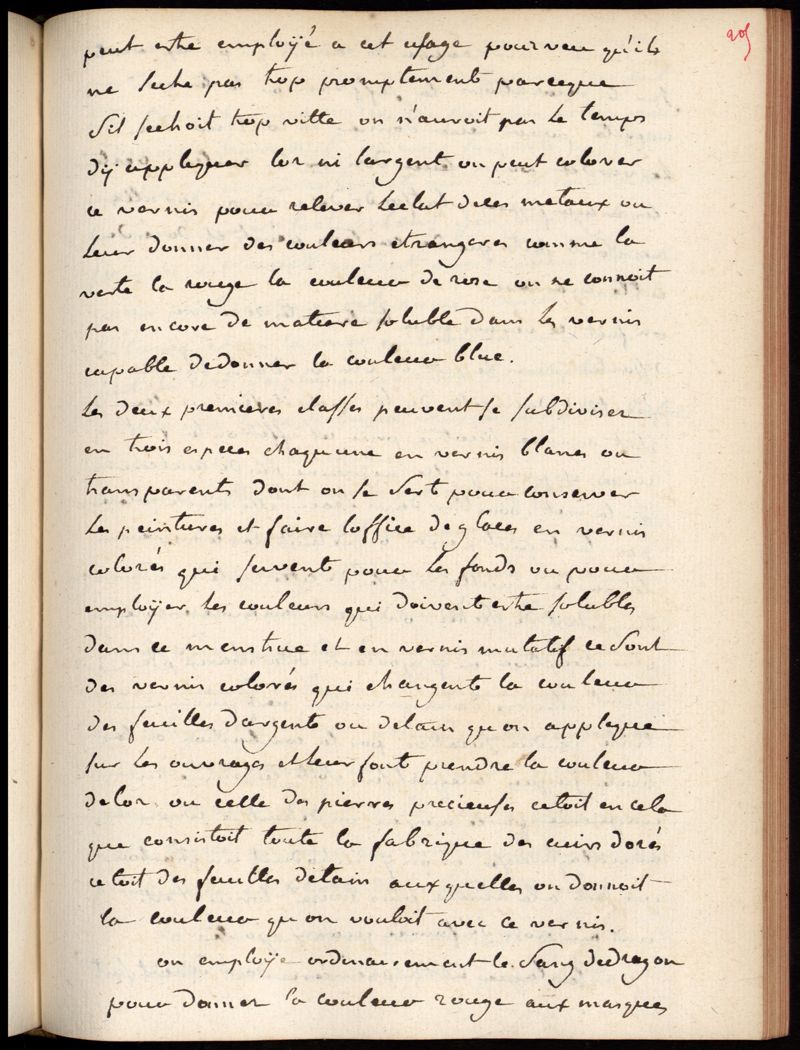 205
peut estre employé a cet usage pourveu qu'ils
ne seche pas trop promptement parceque
sil sechoit trop vitte on n'auroit pas le temps
dÿ appliquer lor ni largent on peut colorer
ce vernis pour relever leclat deces metaux ou
leur donner des couleurs etrangeres comme la
verte la rouge la couleur de rose on ne connoit
pas encore de matiere soluble dans les vernis
capable dedonner la couleur blue.
les deux premieres classes peuvent se subdiviser
en trois especes chaqueune en vernis blancs ou
transparents dont on se sert pour conserver
les peintures et faire loffice de glaces en vernis
colorés qui servent pour les fonds ou pour
employer les couleurs qui doivent estre solubles
dans ce menstrue et en vernis mutatif ce sont
des vernis colorés qui changent la couleur
des feuilles dargent ou detain quon applique
sur les ouvrages et leur font prendre la couleur
delor ou celle des pierres precieuses cetoit en cela
que consistoit toute la fabrique des cuirs dorés
cetoit des feuilles detain auxquelles on donnoit
la couleur quon vouloit avec ce vernis.
on employe ordinairement le sang dedragon
pour donner la couleur rouge aux masques